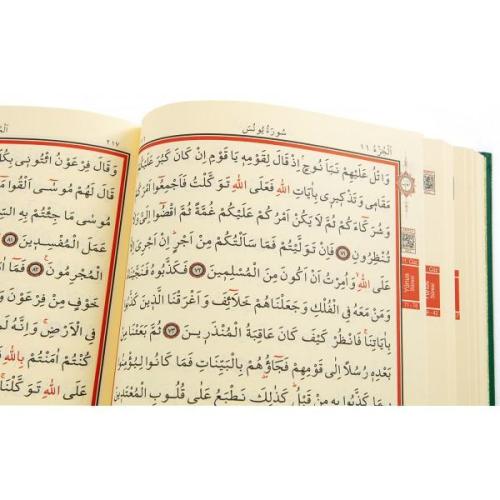 سُورَةُ يُونُسَ
اَلْجُزْءُ ١١
وَاتْلُ عَلَيْهِمْ نَبَاَ نُوحٍۢ اِذْ قَالَ لِقَوْمِه۪ يَا قَوْمِ اِنْ كَانَ كَبُرَ
مَقَام۪ي وَتَذْك۪ير۪ي بِاٰيَاتِ اللّٰهِ فَعَلَى اللّٰهِ تَوَكَّلْتُ فَاَجْمِعُٓوا
وَشُرَكَٓاءَكُمْ ثُمَّ لَا يَكُنْ اَمْرُكُمْ عَلَيْكُمْ غُمَّةً ثُمَّ اقْضُٓوا
تُنْظِرُونِ ﴿٧١﴾ فَاِنْ تَوَلَّيْتُمْ فَمَا سَاَلْتُكُمْ مِنْ اَجْرٍۜ اِنْ اَجْرِيَ
عَلَى اللّٰهِۙ وَاُمِرْتُ اَنْ اَكُونَ مِنَ الْمُسْلِم۪ينَ ﴿٧٢﴾ فَكَذَّبُوهُ
وَمَنْ مَعَهُ فِي الْفُلْكِ وَجَعَلْنَاهُمْ خَلَٓائِفَ وَاَغْرَقْنَا الَّذ۪ينَ
بِاٰيَاتِنَاۚ فَانْظُرْ كَيْفَ كَانَ عَاقِبَةُ الْمُنْذَر۪ينَ ﴿٧٣﴾ ثُمَّ بَعَثْنَا
بَعْدِه۪ رُسُلًا اِلٰى قَوْمِهِمْ فَجَٓاؤُ۫هُمْ بِالْبَيِّنَاتِ فَمَا كَانُوا لِيُؤْمِنُوا
كَذَّبُوا بِه۪ مِنْ قَبْلُۜ كَذٰلِكَ نَطْبَعُ عَلٰى قُلُوبِ الْمُعْتَد۪ينَ
Yûnus
Sûresi
٢١٧
وَقَالَ فِرْعَوْنُ ائْتُون۪ي بِكُلِّ
قَالَ لَهُمْ مُوسٰٓى اَلْقُوا
مُوسٰى مَا جِئْتُمْ بِهِ
عَمَلَ الْمُفْسِد۪ينَ ﴿٨١﴾
الْمُجْرِمُونَ ﴿٨٢﴾ فَمَٓا
خَوْفٍ مِنْ فِرْعَوْنَ
فِي الْاَرْضِۚ وَاِنَّهُ
كُنْتُمْ اٰمَنْتُمْ بِاللّٰهِ
عَلَى اللّٰهِ تَوَكَّلْنَا